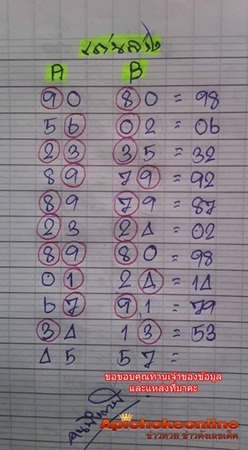 เด่นล่าง
A B
90 80 = 98
56 02 = 06
23 35 = 32
89 79 = 92
89 79 = 87
23 24 = 02
89 80 = 98
01 24 = 14
67 91 = 79
34 13 = 53
45 57 =
ขอขอบคุณท่านเจ้าของข้อมูล
และแหล่งที่มาคะ
Apichokeonline
ข่าวหวย ข่าวดังเลขเด็ด